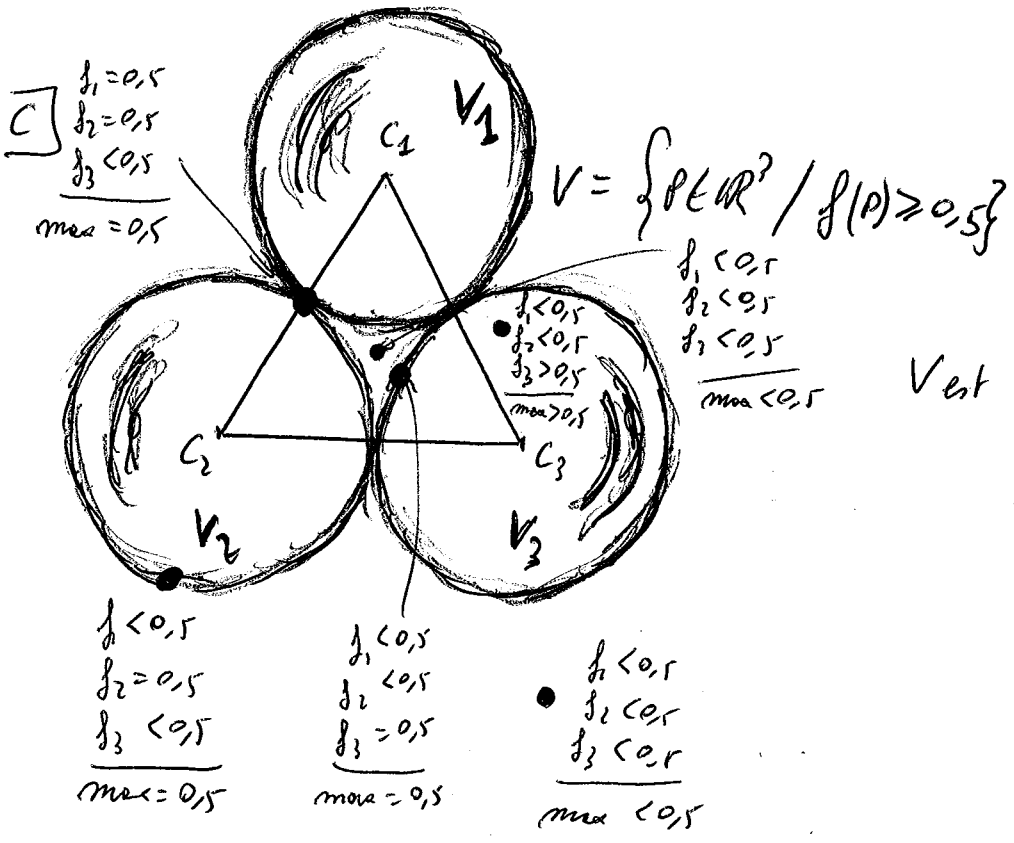 C
f₁=0,5
f₂=0,5
f₃<0,5
max=0,5
V1
C₁
V={P∈ℝ³/f(P)≥0,5}
f₁<0,5
f₂<0,5
f₃<0,5
max<0,5
f₁<0,5
f₂<0,5
f₃>0,5
max>0,5
V est
C₂
C₃
V₂
V₃
f<0,5
f₂=0,5
f₃<0,5
max=0,5
f₁<0,5
f₂<0,5
f₃=0,5
max=0,5
f₁<0,5
f₂<0,5
f₃<0,5
max<0,5